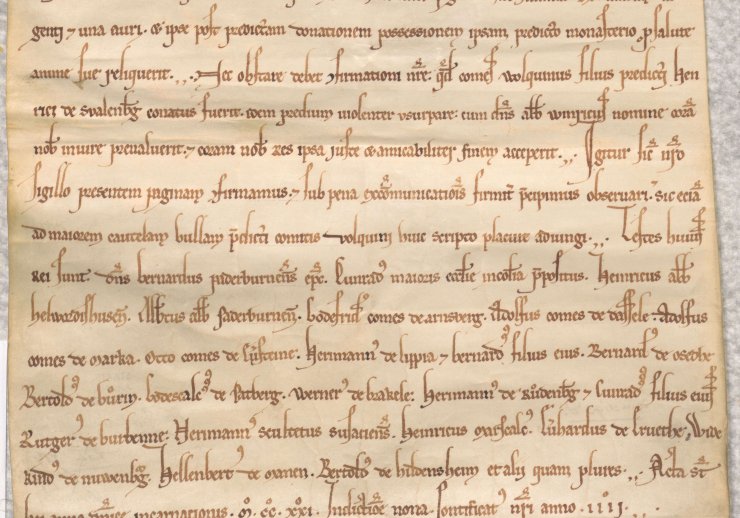 genti & una auri. & ipse post predictam donationem possessionem ipsam predicto monasterio p salute
anime sue reliquerit. Nec obstare debet ɔfirmationi nr̄e. qd̄ comes volquinus filius predicti hen
rici de svalenbḡ conatus fuerit. idem predium violenter vsurpare: cum dn̄s abb̄ winricus nomine corā
nob̄ in iure preualuerit. & coram nob̄ res ipsa iuste & amicabiliter finem acceperit. Igitur sic nr̄o
sigillo presentem paginam ɔfirmamus. & sub pena excōmunicationis firmit̄ p̄cipimus obseruari. sic etiā
ad maiorem cautelam bullam p̄dicti comitis volquini huic scripto placuit adiungi. Testes huius
rei sunt. dn̄s bernardus paderburnēsis ep̄c. Cunrad᾽ maioris ecclie in colonia p̄positus. Heinricus abb̄
helwardishusen̄. Alb̄tus abb̄ paderburnen̄. Godefrid᾽ comes de arnsberg. Adolfus comes de dassele. Adolfus
comes de marka. Otto comes de Hermann᾽ de lippia & bernard᾽ filius eius. Bernard᾽ de osethe
Bertold᾽ de bůrin. Godescalc᾽ de Patberg. Werner᾽ de brakele: Hermann᾽ de Růdenbḡ & Cunrad᾽ filius eius
Rutger᾽ de burbenne: Hermann᾽ scultetus susaciens̄. Heinricus marscalc᾽. de Eruethe. Wide
kind᾽ de nuwenbḡ. Hellenbert᾽ de manen. Bertold᾽ de hildensheym et alij quam plures. Acta st̄
anno incarnationis. M. CC. XXI. Indictiōe nona. Pontificat᾽ nr̄i anno. IIII.